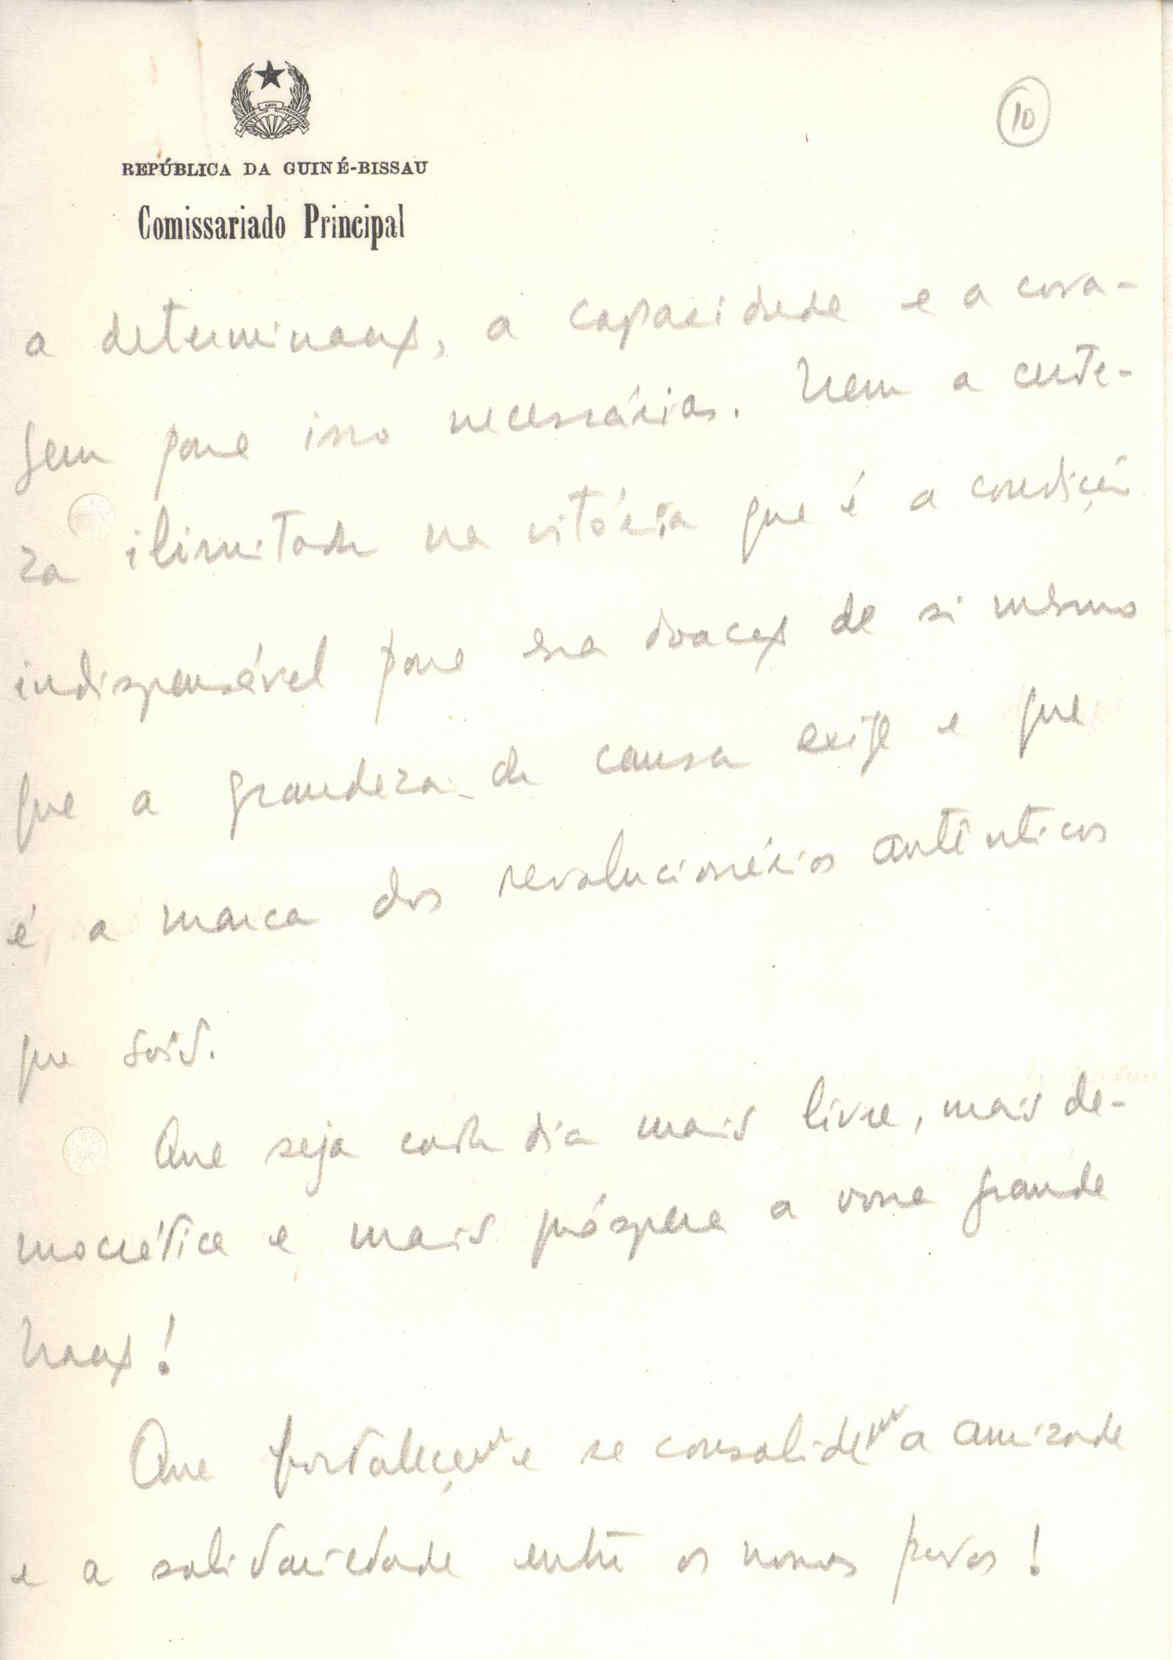 10
REPÚBLICA DA GUINÉ-BISSAU
Comissariado Principal
a determinação, a capacidade e a cora-
gem para isso necessárias. Nem a certe-
za ilimitada na vitória que é a condição
indispensável para essa doação de si mesmo
que a grandeza da causa exige e que
é a marca dos revolucionários autênticos
que sois.
Que seja cada dia mais livre, mais de-
mocrática e mais próspera a vossa grande
Nação!
Que fortaleçam e se consolidem a amizade
e a solidariedade entre os nossos povos!